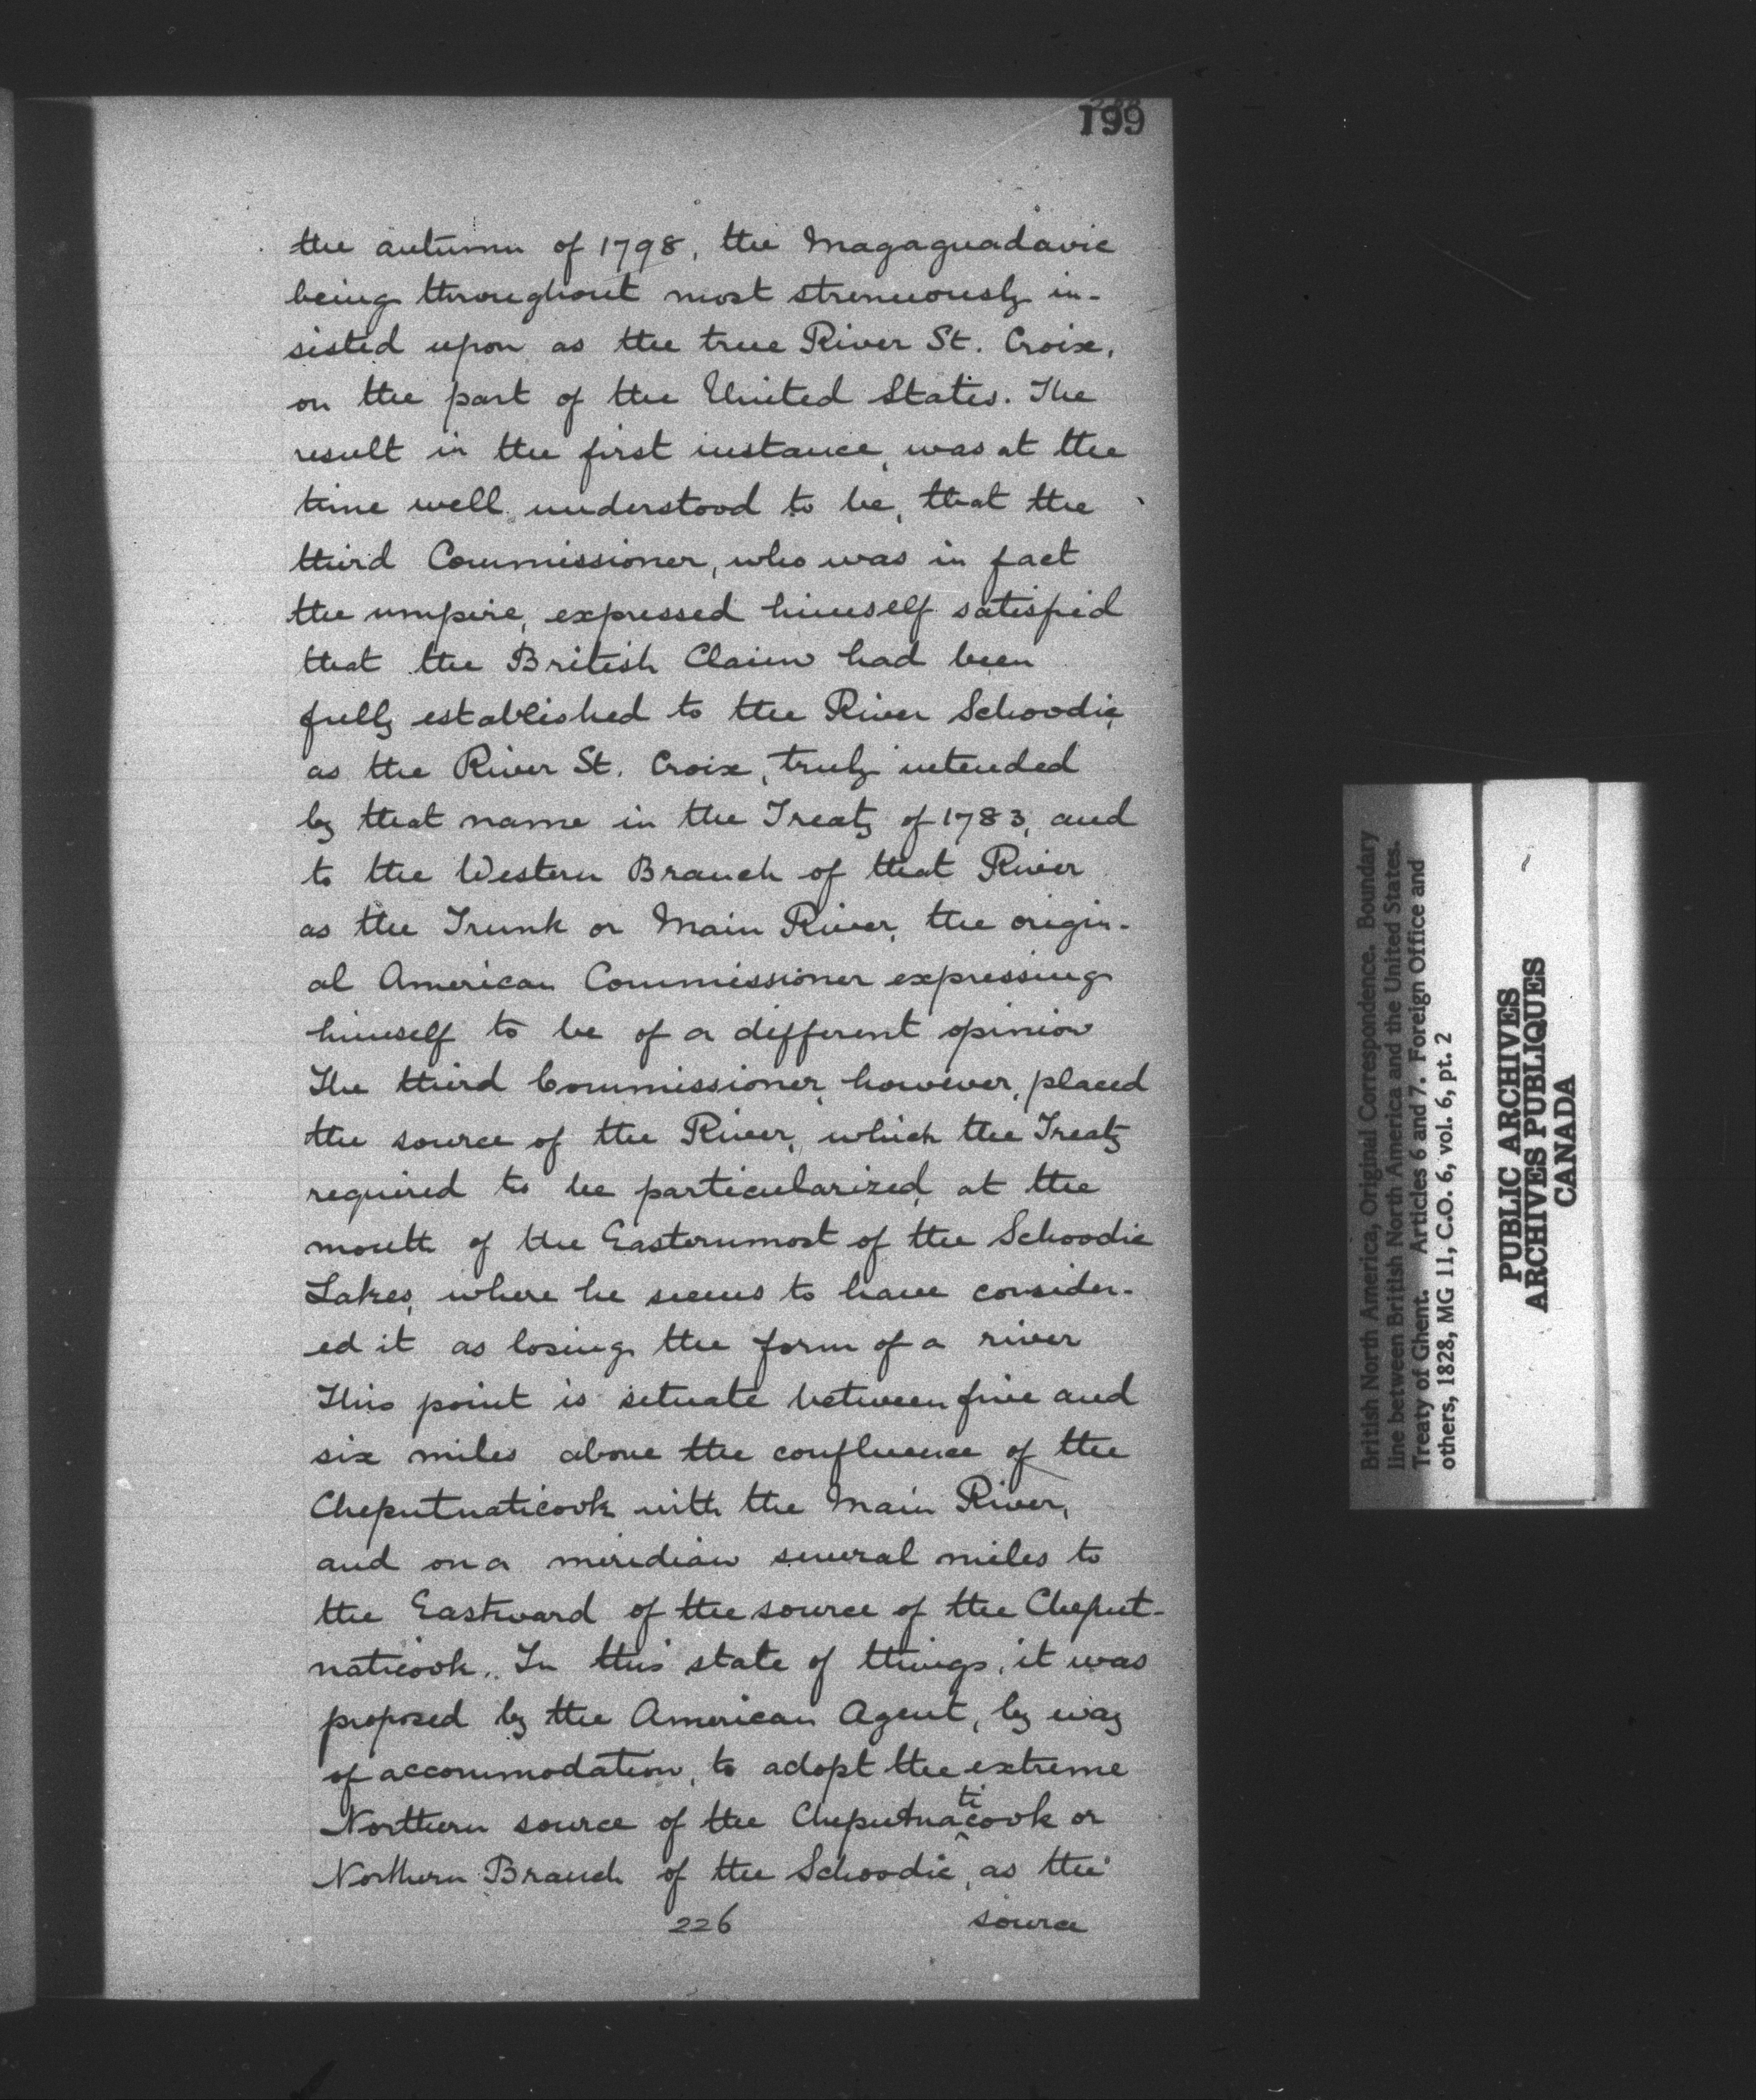 199
the autumn of 1798, the Magaguadavic
being throughout most strenuously in-
sisted upon as the true River St. Croix,
on the part of the United States. The
result in the first instance, was at the
time well understood to be, that the
third Commissioner, who was in fact
the umpire, expressed himself satisfied
that the British Claim had been
fully established to the River Schoodic,
as the River St. Croix, truly intended
by that name in the Treaty of 1783, and
to the Western Branch of that River
as the Trunk or Main River, the origin-
al American Commissioner expressing
himself to be of a different opinion
The third Commissioner, however, placed
the source of the River, which the Treaty
required to be particularized, at the
mouth of the Easternmost of the Schoodic
Lakes, where he seems to have consider-
ed it as losing the form of a river
This point is situate between five and
six miles above the confluence of the
Cheputnaticook with the Main River,
and on a meridian several miles to
the Eastward of the source of the Cheput-
naticook. In this state of things, it was
proposed by the American Agent, by way
of accommodation, to adopt the extreme
Northern source of the Cheputnaticook or
Northern Branch of the Schoodic, as the
226 source
British North America, Original Correspondence. Boundary
line between British North America and the United States.
Treaty of Ghent. Articles 6 and 7. Foreign Office and
others, 1828, MG 11, C.O. 6, vol. 6, pt. 2
PUBLIC ARCHIVES
ARCHIVES PUBLIQUES
CANADA